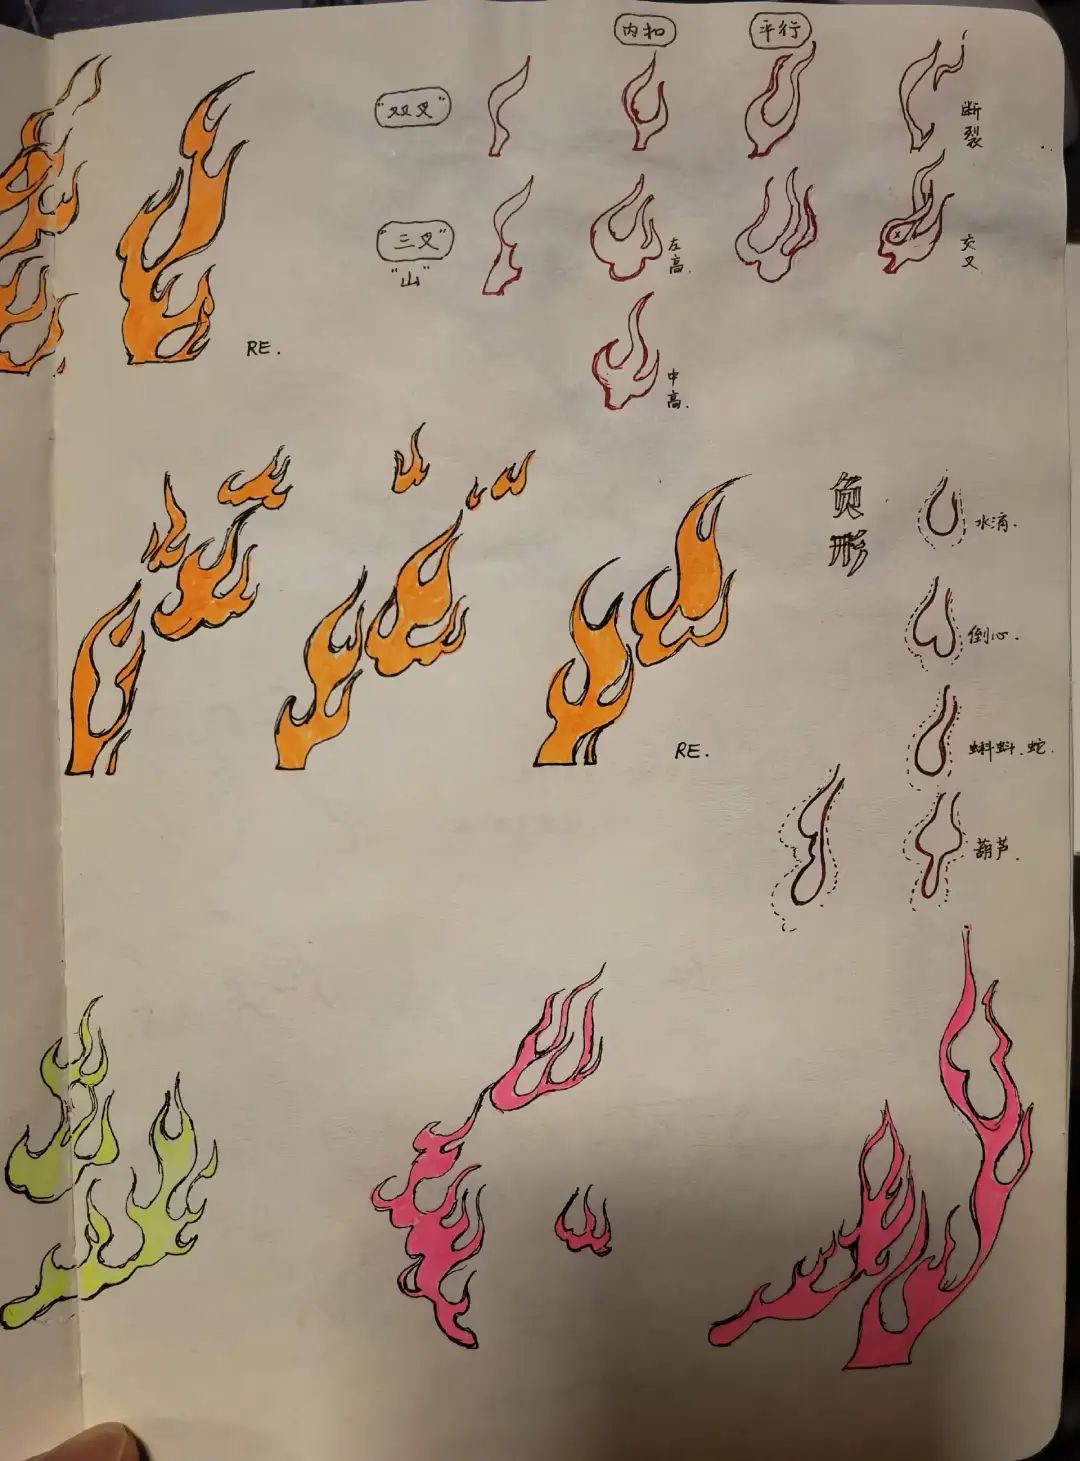 内扣
平行
“双叉”
断裂
“三叉”
“山”
左高.
交叉
RE.
中高.
负形
水滴.
倒心.
RE.
蝌蚪.蛇.
葫芦.